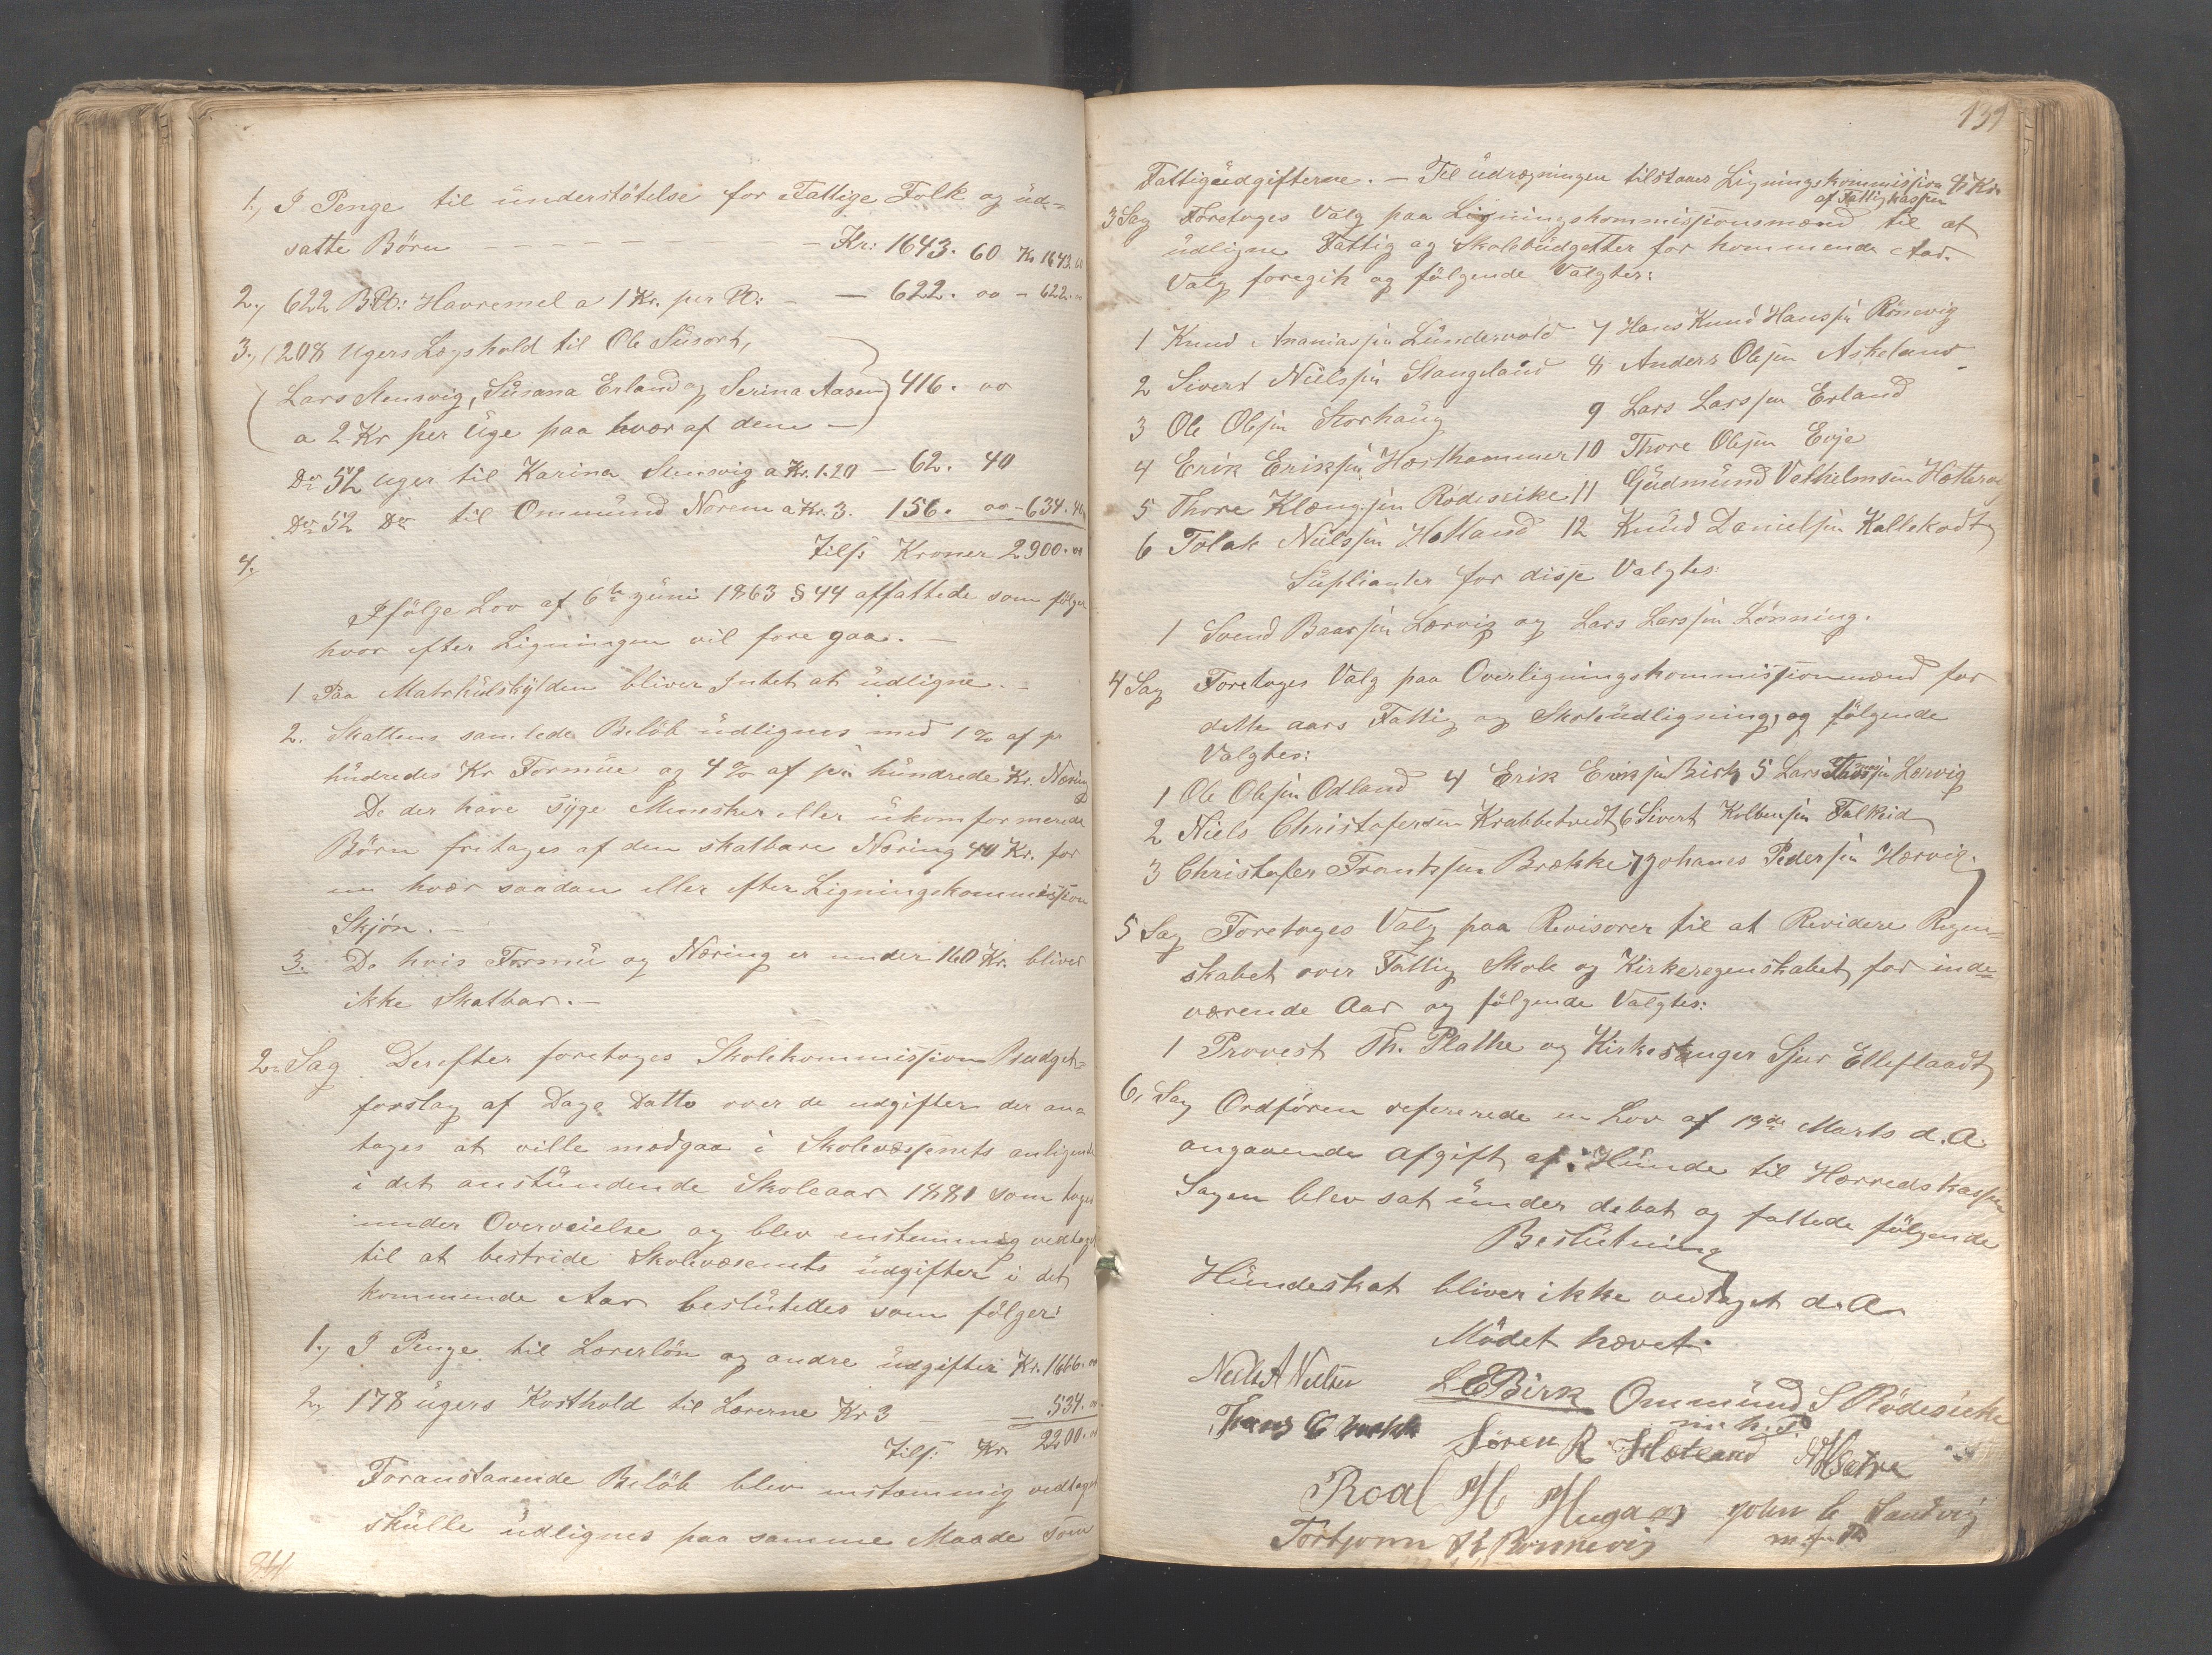 1., I Penge til understötelse for Fattige Folk og ud-
satte Börn - - - - - - Kr: 1643. 60 Kr 1643. 60
2., 622 BPd: Havremel a 1 Kr. per Pd: - - 622. 00 - 622. 00
3., (208 Ugers Lægshold til Ole Susort,
Lars Stensvig, Susana Erland og Serina Aasen) 416. 00
a 2 Kr per Uge paa hvær af dem -
Do 52 Uger til Karina Stensvig a Kr. 1.20 - 62. 40
Do 52 Do til Ommund Norem a Kr. 3. 156. 00 - 634. 40
Tils: Kroner 2900. 00
4.
Ifölge Lov af 6te Juni 1863 § 44 affattede som fölger
hvor efter Ligningen vil fore gaa. -
1 Paa Matrkulskylden bliver Intet at udligne. -
2. Skattens samlede Belöb udlignes med 1 % af pr
hudredes Kr Formue og 4 % af pr: hundrede Kr. Næring
De der have syge Mensker eller ukomformerede
Börn fritages af den skatbare Næring 40 Kr. for
en hvær saadan eller efter Ligningskommission
Skjön. -
3. De hvis Formue og Næring er under 160 Kr. bliver
ikke Skatbar. -
2. Sag Derefter foretoges Skolekommissions Budget-
forslag af Dags Datto over de udgifter der ana
tages at ville modgaa i Skolevæssenets anligende
i det anstundende Skoleaar 1881 som toges
under Overveielse og blev enstemmig vedtaget
til at bestride Skolevæsenets udgifter i det
kommende Aar beslutedes som fölger:
1., I Penge til Lærerlön og andre udgifter Kr. 1666. 00
2, 178 ugers Kosthold til Lærerne Kr 3 534. 00
Tils: Kr. 2200. 00
Foranstaaende Belöb blev enstemmig vedtaget
skulle udlignes paa samme Maade som
131
Fattigudgifterne. - Til udregningen tilstaaes Ligningskommission 8 Kr.
af Fattigkassen
3 Sag Foretoges Valg paa Ligningskommissionsmænd til at
udligne Fattig og Skolebudgetter for kommende Aar.
Valg foregik og fölgende Valgtes:
1 Knud Ananiassen Lundervold 7 Hans Knud Hanssen Rönevig
2 Sivert Nielssen Stangeland 8 Anders Olesen Askeland
3 Ole Olesen Storhaug 9 Lars Larssen Erland
4 Erik Erikssen Hæsthammer 10 Thore Olesen Evje
5 Thore Klængsen Rödeseike 11 Gudmund Velhelmsen Hottera
6 Tolak Nielssen Hætland 12 Knud Danielsen Kallekodt
Suplianter for disse Valgtes:
1 Svend Baarsen Lærvig og Lars Larssen Lönning.
4 Sag Foretoges Valg paa Overligningskommissionmænd for
dette aars Fattig og Skoleudligning, og fölgende
Valgtes:
1 Ole Olesen Odland 4 Erik Erikssen Birk 5 Lars Larssen Lærvig
2 Niels Christofersen Krabbetvedt 6 Sivert Kolbensen Falkeid
3 Christofer Frantssen Brække 7 Johanes Pedersen Hærvig.
5 Sag Foretoges Valg paa Revisorer til at Revidere Regen-
skabet over Fattig Skole og Kirkeregenskabet for inde-
værende Aar og fölgende Valgtes:
1 Provest Th. Plathe og Kirkesanger Sjur Elleflaadt
6, Sag Ordfören refererede en Lov af 19de Marts d. A.
angaaende Afgift af Hunde til Herredskassen
Sagen blev sat under debat og fattede fölgende
Beslutning
Hundeskat bliver ikke vedtaget d. A.
Mödet hævet.
Niels A Nielsen L E Birk Ommund S Rödeseike
m. h. P.
Sören R Hætland
Roal H Hugaas John C Sandvig
Torbjorn K Rönnevig m. h. P.